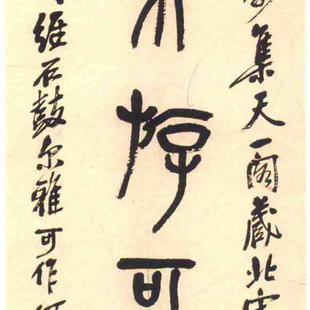 集天一閣藏北宋
斿可
維石鼓尔雅可作